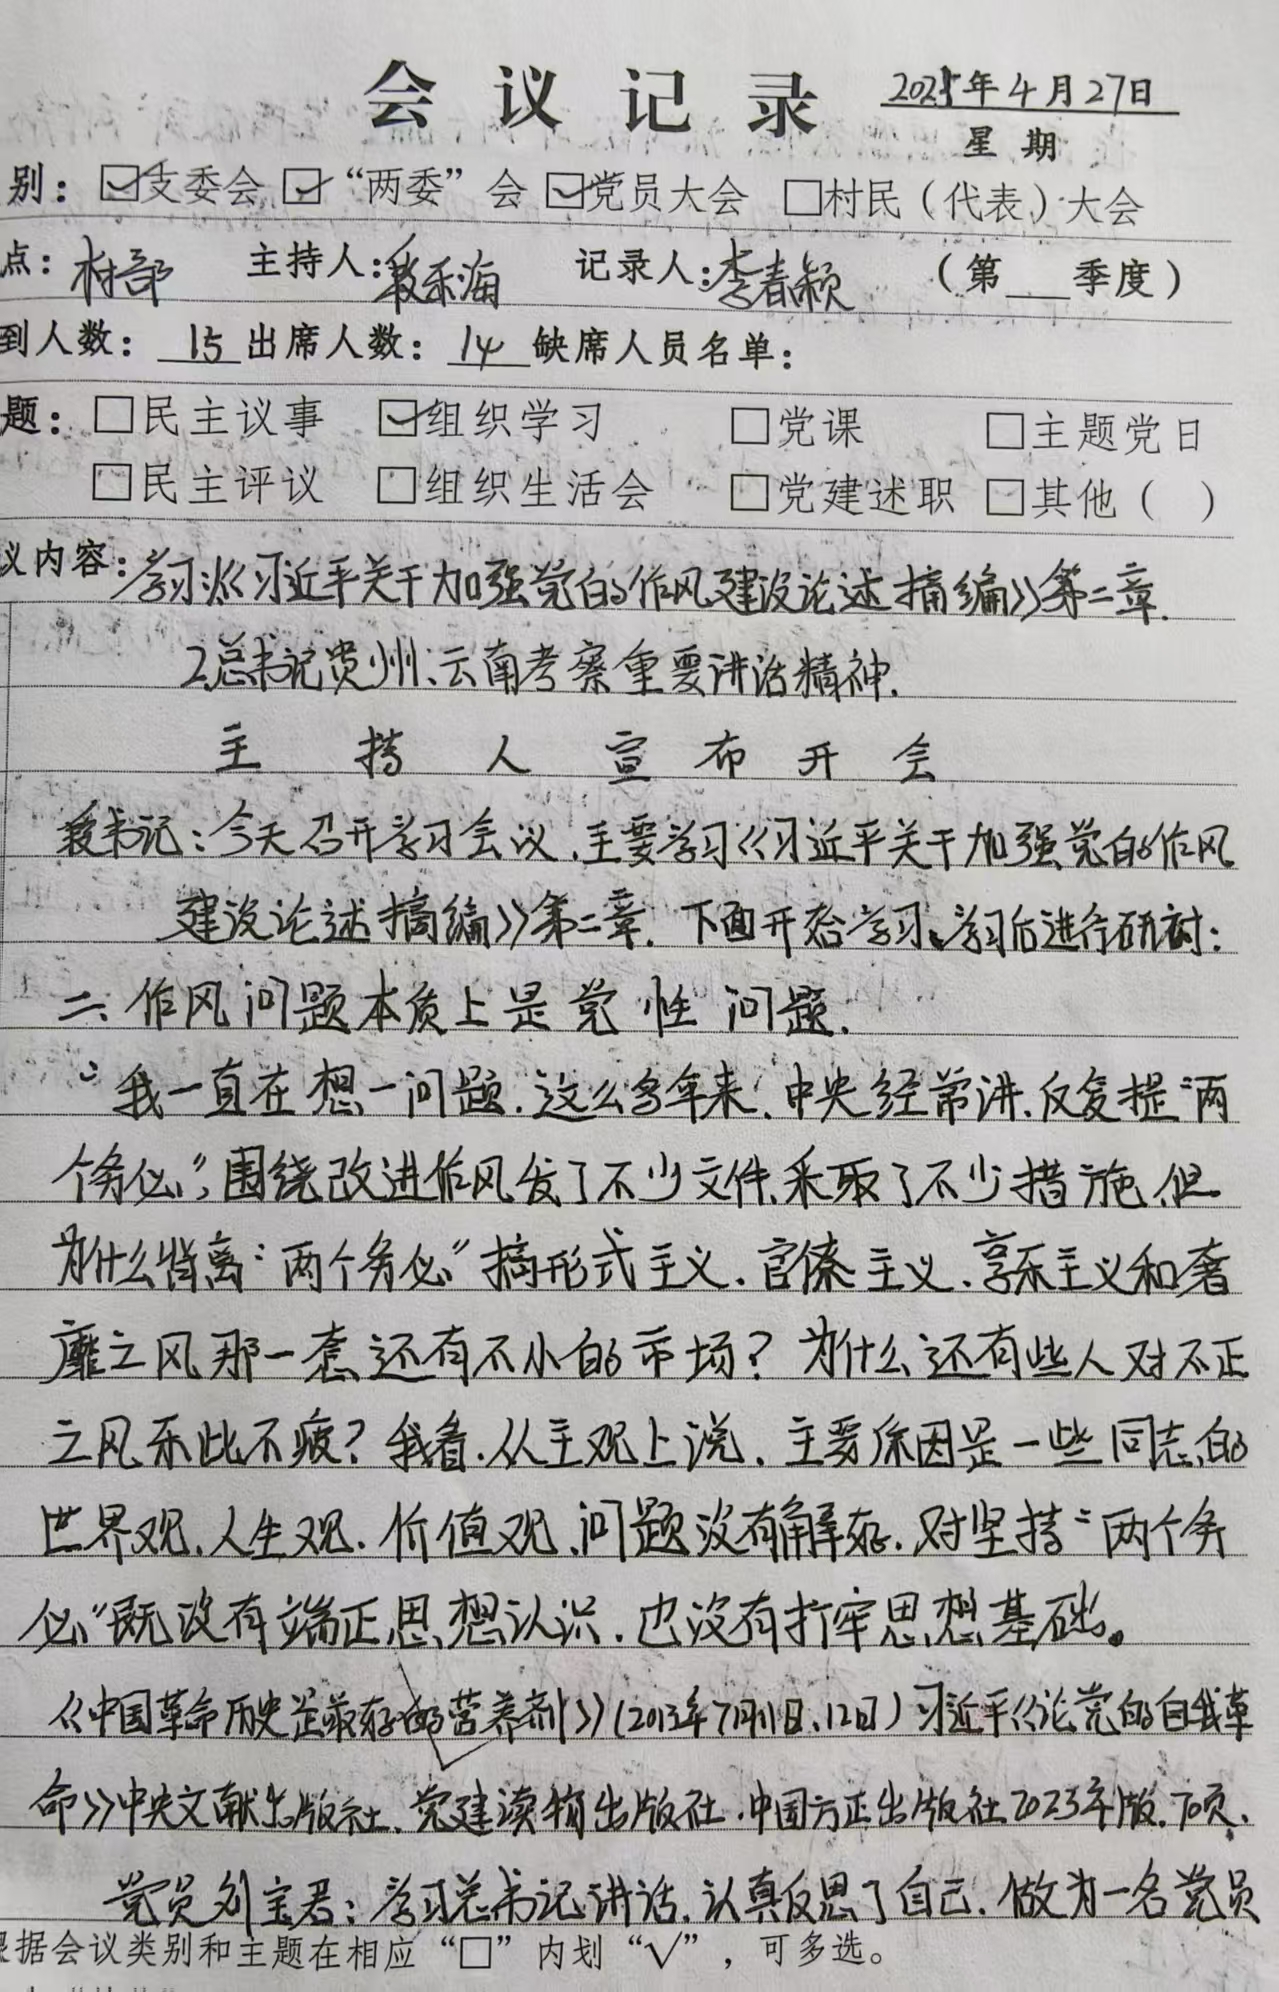 会议记录 2025年4月27日
星期
别：☑支委会 ☑“两委”会 ☑党员大会 □村民（代表）大会
点：村部 主持人：乐海 记录人：李春颖 （第___季度）
到人数：15 出席人数：14 缺席人员名单：
题：□民主议事 ☑组织学习 □党课 □主题党日
□民主评议 □组织生活会 □党建述职 □其他（ ）
议内容：学习《习近平关于加强党的作风建设论述摘编》第二章.
2.总书记贵州、云南考察重要讲话精神.
主持人宣布开会
书记：今天召开学习会议,主要学习《习近平关于加强党的作风
建设论述摘编》第二章. 下面开始学习,学习后进行研讨：
二、作风问题本质上是党性问题.
“我一直在想一问题.这么多年来,中央经常讲,反复提“两
个务必”,围绕改进作风发了不少文件,采取了不少措施,但
为什么背离“两个务必”搞形式主义、官僚主义、享乐主义和奢
靡之风那一套还有不小的市场？为什么还有些人对不正
之风乐此不疲？我看,从主观上说,主要原因是一些同志的
世界观、人生观、价值观、问题没有解好,对坚持“两个务
必”既没有端正思想认识,也没有打牢思想基础。
《中国革命历史是最好的营养剂》（2013年7月11日、12日）习近平《论党的自我革
命》中央文献出版社、党建读物出版社、中国方正出版社2023年版,70页.
党员刘宝君：学习总书记讲话,认真反思了自己,做为一名党员
根据会议类别和主题在相应“□”内划“√”，可多选。